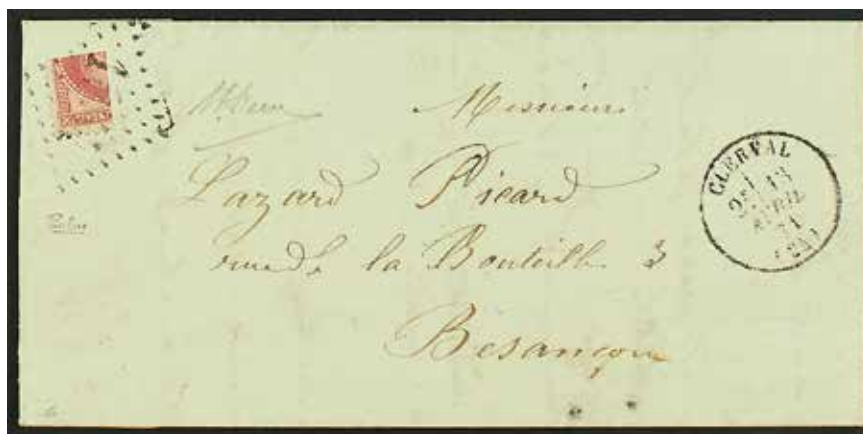 Messieurs
Lazard Picard
rue de la Bouteille 3
Besançon
CLERVAL
AVRIL
71
(24)